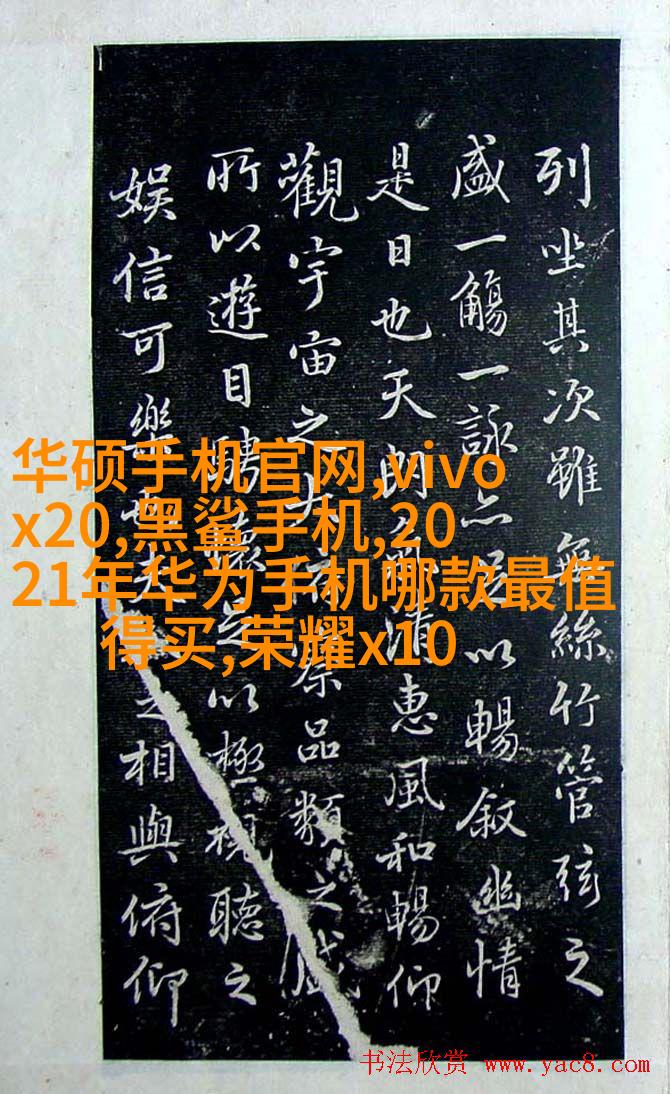 列坐其次雖無絲竹管弦之
盛一觴一詠亦足以暢叙幽情
是日也天朗氣清惠風和暢仰
觀宇宙之大俯察品類之盛
所以遊目騁懷足以極視聽之
娛信可樂也夫之相與俯仰
华硕手机官网,vivo
x20,黑鲨手机,20
21年华为手机哪款最值
得买,荣耀x10
书法欣赏 www.yac8.com